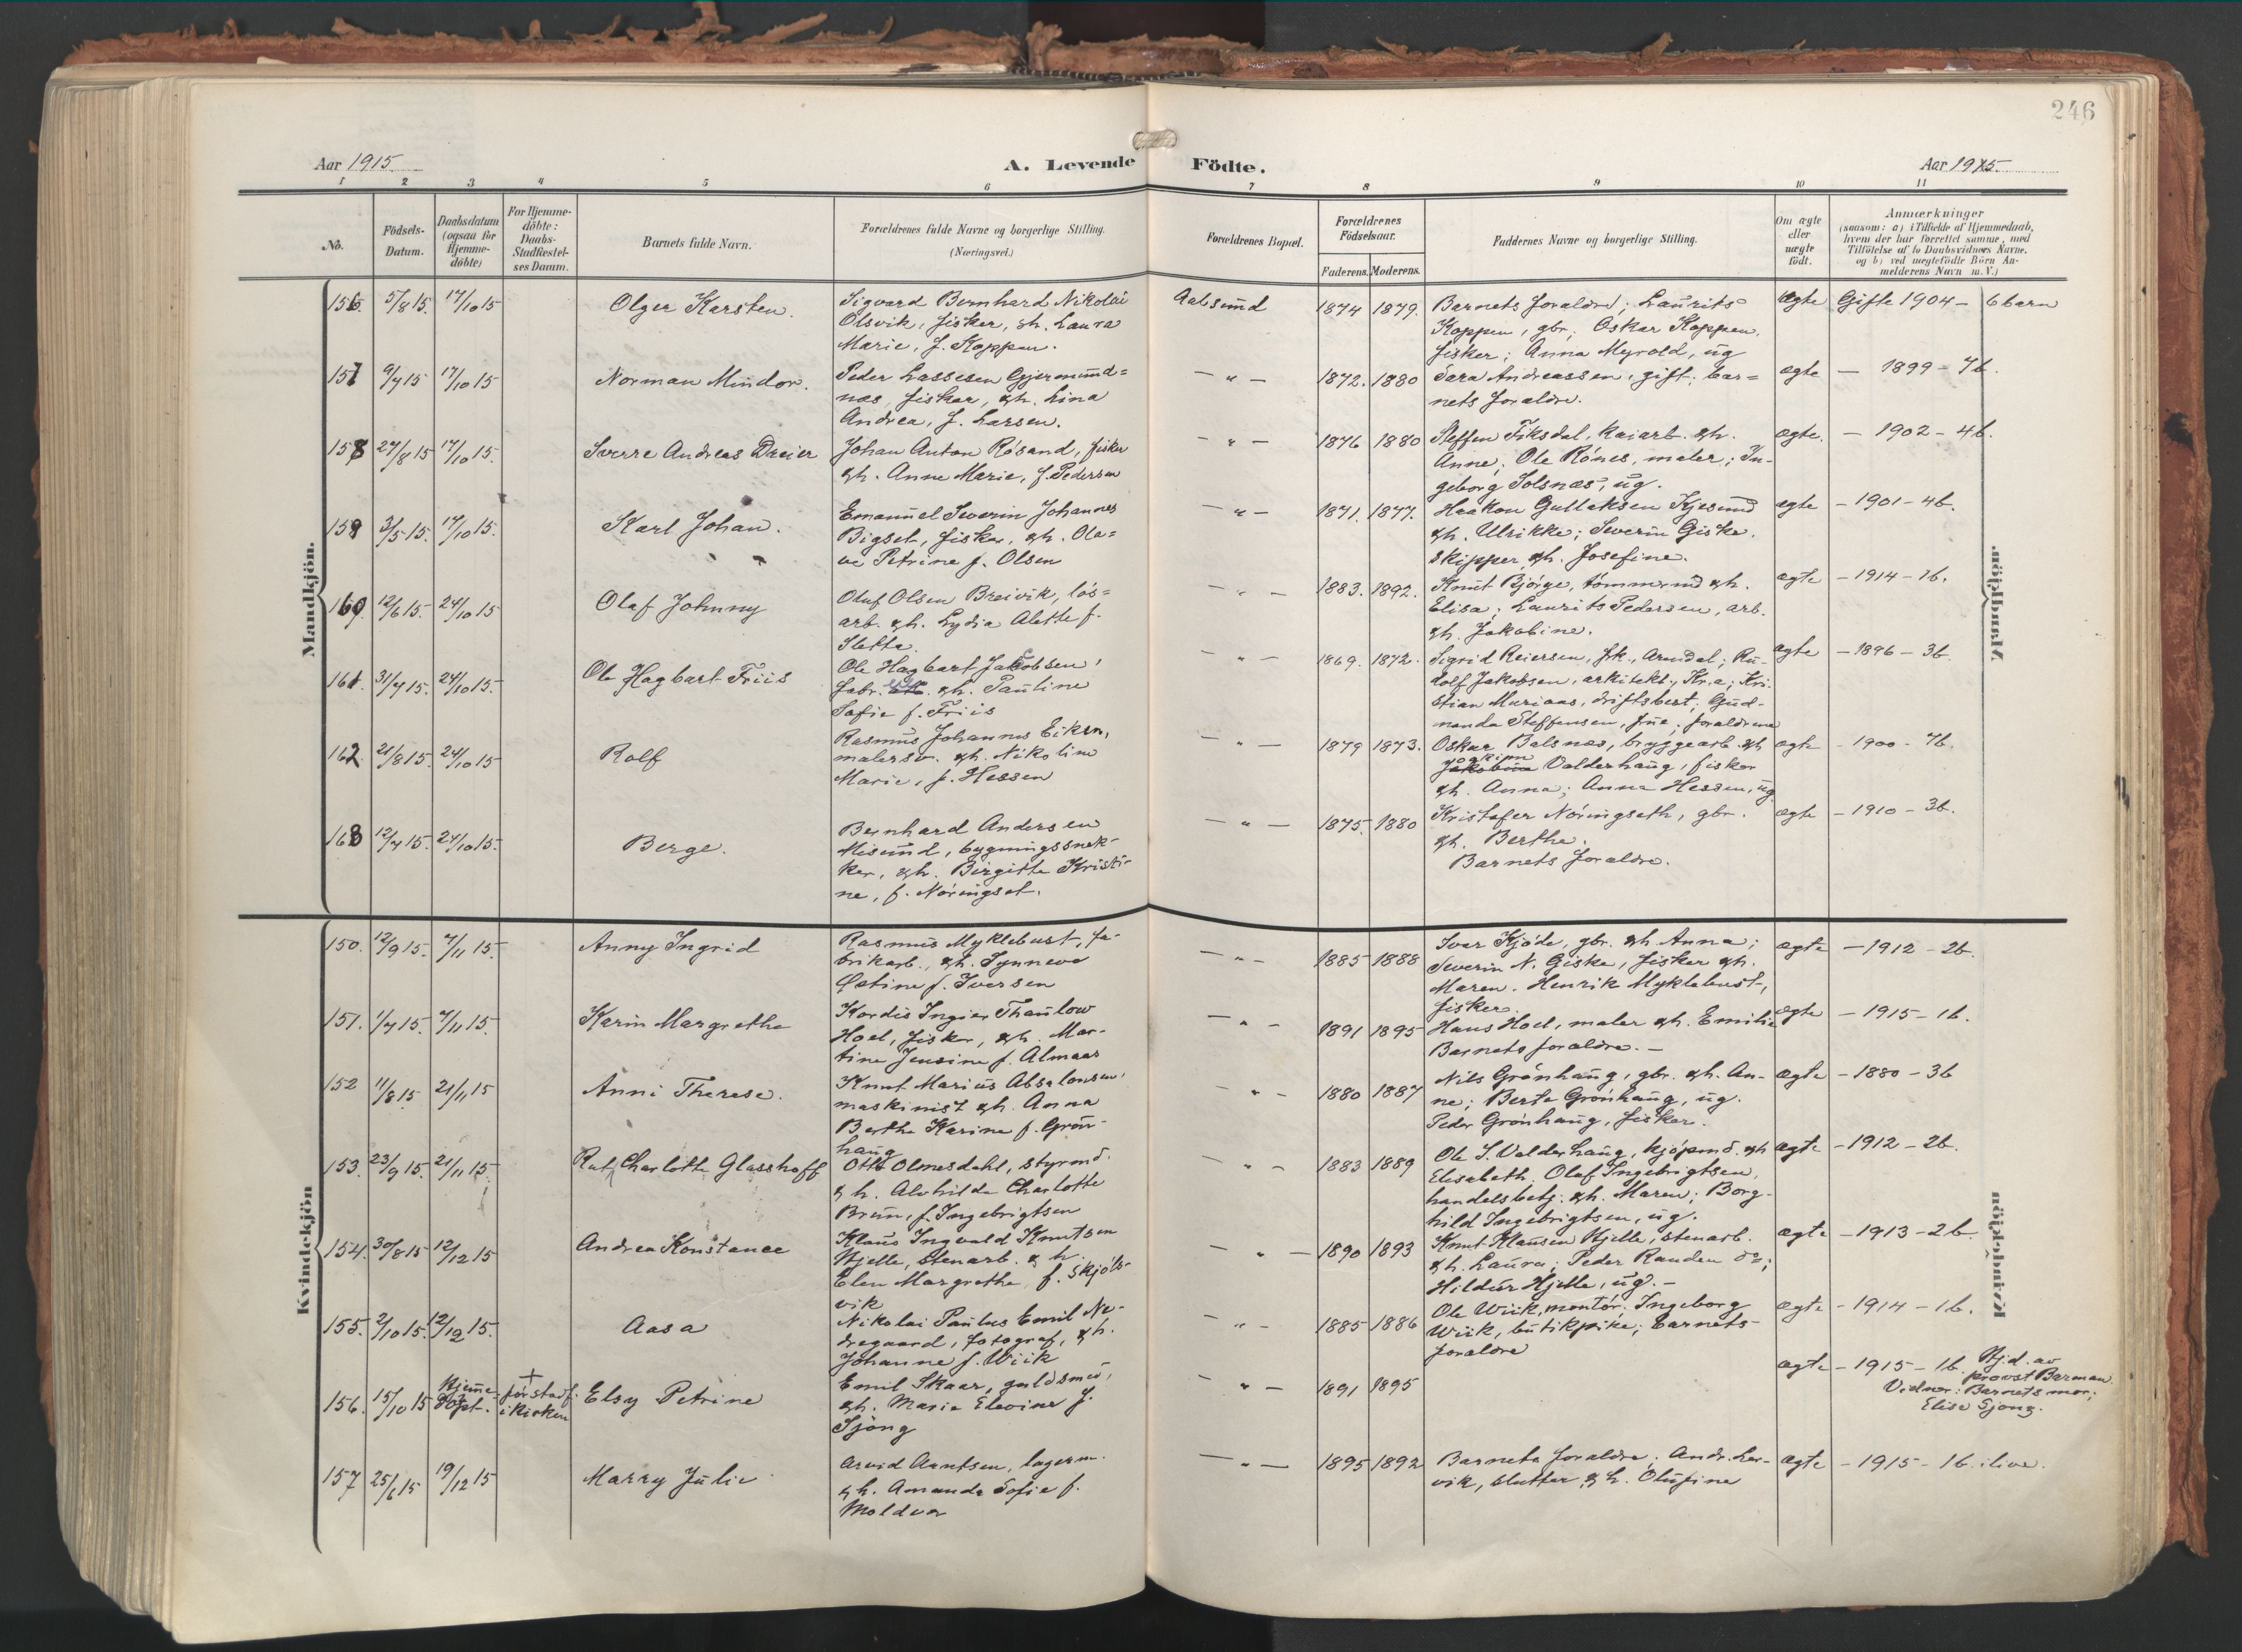 246
Aar 1915. A. Levende Födte. Aar 1915.
1 2 3 4 5 6 7 8 9 10 11
No.
Födsels-
Datum.
Daabsdatum
(ogsaa for
Hjemme-
döbte)
For Hjemme-
döbte:
Daabs-
Stadfestel-
ses Datum.
Barnets fulde Navn.
Forældrenes fulde Navne og borgerlige Stilling.
(Næringsvei.)
Forældrenes Bopæl.
Forældrenes
Födselsaar.
Faderens. Moderens.
Faddernes Navne og borgerlige Stilling.
Om ægte
eller
uægte
födt.
Anmærkninger
(saasom: a) i Tilfælde af Hjemmedaab,
hvem der har forrettet samme, med
Tilföielse af to Daabsvidners Navne,
og b) ved uægtefödte Börn An-
melderens Navn m. V.)
Mandkjön.
156 5/8 15. 17/10 15 Olger Karsten.
Sigvard Bernhard Nikolai
Olsvik, fisker, gh. Laura
Marie, f. Koppen.
Aalesund 1874 1879.
Barnets foraldre; Laurits
Koppen, gbr; Oskar Koppen,
fisker; Anna Myrold, ug
ægte Gifte 1904 — 6 barn
157 9/7 15 17/10 15 Norman Mindor.
Peder Lassesen Gjermund=
næs, fisker, gh. Lina
Andrea, f. Larsen.
— " — 1872. 1880
Sara Andreassen, gift; bar=
nets foraldre.
ægte — 1899 – 7b.
158 27/8 15 17/10 15. Sverre Andreas Dreier
Johan Anton Rösand, fisker
gh. Anne Marie, f. Pedersen
— " — 1876 1880
Steffen Fiksdal, kaiarb. gh.
Anne; Ole Rönes, maler; In-
geborg Solsnæs, ug.
ægte. — 1902 – 4b.
159 3/5 15. 17/10 15. Karl Johan.
Emanuel Severin Johannes
Bigset, fisker, gh. Ola=
ve Petrine f. Olsen
— " — 1871. 1877.
Haakon Gullaksen Kjesund
gh. Ulrikke; Severin Giske,
skipper gh. Josefine.
ægte — 1901 – 4b.
160 12/6 15. 24/10 15 Olaf Johnny
Oluf Olsen Breivik, lös=
arb. gh. Lydia Alette f.
Slette.
— " — 1883. 1892.
Knut Björge, tömmermd gh.
Elisa; Laurits Pedersen, arb.
gh. Jakobine.
ægte — 1914 – 1b.
161 31/7 15. 24/10 15. Ole Hagbart Friis
Ole Hagbart Jakobsen,
fabr. gh. Pauline
Sofie f. Friis
— " — 1869. 1872.
Sigrid Reiersen, frk., Arendal; Ru-
dolf Jakobsen, arkitekt, Kr.a; Kri-
stian Mariaas, driftsbest; Gud-
nanda Steffensen, frue; foraldrene
ægte — 1896 – 3b.
162 21/8 15. 24/10 15 Rolf
Rasmus Johannes Eiksn,
malersv. gh. Nikoline
Marie, f. Hessen
— " — 1879 1873.
Oskar Balsnæs, bryggearb. gh
Valderhaug, fisker
gh. Anna; Anna Hessen, ug
ægte – 1900 – 7b.
163 12/7 15. 24/10 15. Berge.
Bernhard Andersen
Misund, bygningssnek-
ker, gh. Birgitte Kristi-
ne, f. Nöringset.
— " — 1875. 1880
Kristofer Nöringseth, gbr.
gh. Berthe.
Barnets foraldre.
ægte — 1910 – 3b.
Mandkjön.
Kvindekjön
150. 12/9 15. 7/11 15. Anny Ingrid
Rasmus Myklebust, fa-
brikarb., gh. Synneve
Østine f. Iversen
— " — 1885 1888
Ivar Kjöde, gbr. gh Anna;
Severin N. Giske, fisker gh.
Maren. Henrik Myklebust,
fisker.
ægte — 1912 – 2b.
151. 1/7 15. 7/11 15. Karin Margrethe
Kordis Ingier Thaulow
Hoel, fisker, gh. Mar-
tine Jensine f. Almaas
— " — 1891 1895
Hans Hoel, maler gh. Emilie
Barnets foraldre. —
ægte — 1915 – 1b.
152 11/8 15 21/11 15 Anni Therese.
Knut Marius Absalonsen,
maskinist gh. Anna
Berthe Karine f. Grön-
haug
" — 1880 1887
Nils Grönhaug, gbr. gh. An-
ne; Berte Grönhaug, ug.
Peder Grönhaug, fisker.
ægte — 1880 – 3b
153. 23/9 15. 21/11 15. Rut Charlotte Glasshoff
Otto Olmesdahl, styrmd.
gh. Alvhilde Charlotte
Brun, f. Ingebrigtsen
— " — 1883 1889
Ole S. Valderhaug, kjöpmd. gh
Elisabeth. Olaf Ingebrigtsen,
handelsbetj. gh. Maren; Borg-
hild Ingebrigtsen, ug.
ægte — 1912 – 2b.
154. 30/8 15 12/12 15 Andrea Konstance
Klaus Ingvald Knutsen
Hjelle, stenarb. gh.
Elen Margrethe, f. Skjöls-
vik
— " — 1890 1893
Knut Klausen Hjelle, stenarb.
gh. Laura; Peder Randen do;
Hildur Hjelle, ug. —
ægte — 1913 – 2b.
155. 2/10 15. 12/12 15. Aasa
Nikolai Paulus Emil Ne-
dregaard, fotograf, gh.
Johanne f. Wiik
— " — 1885 1886
Ole Wiik, montör; Ingeborg
Wiik, butikpike; barnets
foraldre
ægte – 1914 – 1b.
156. 15/10 15 Hjeme= döpt. + för stadf. i kirken Elsy Petrine
Emil Skaar, guldsmed,
gh. Marie Elevine f.
Sjöng
— " — 1891 1895
ægte – 1915 – 1b. Hj.d. av
provst Barman.
Vidner: Barnets mor;
Elise Sjong.
157 25/6 15 19/12 15 Marry Julie
Arvid Arntsen, lagerm.
gh. Amanda Sofie f.
Moldver
— " — 1895 1892
Barnets foraldre; Andr. Ler-
vik, slutter, gh. Olufine
ægte – 1915 – 1b. ilive.
Kvindekjön